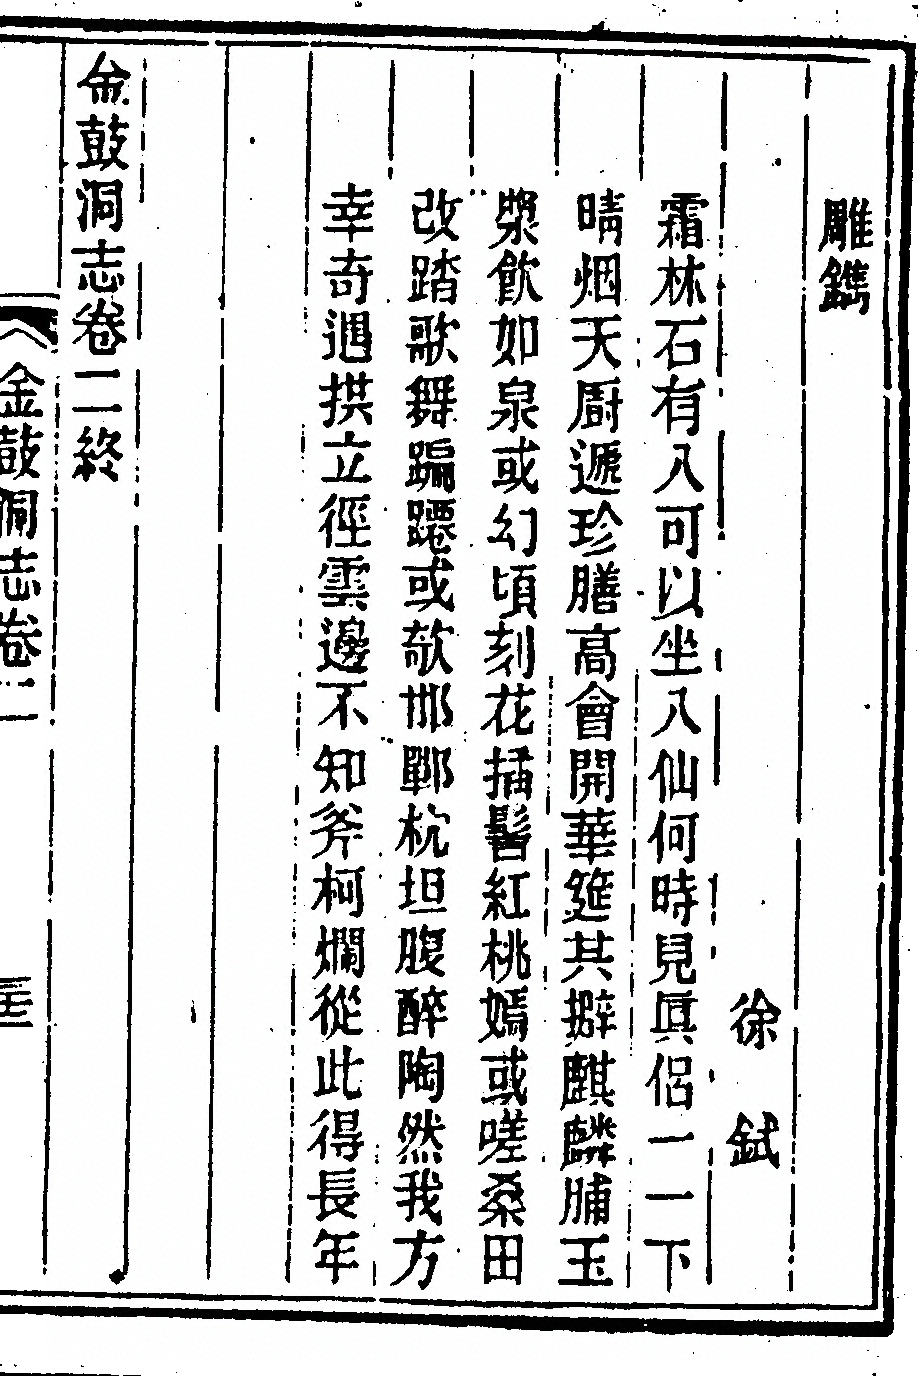 雕鐫
徐鉽
霜林石有八可以坐八仙何時見眞侶一一下
晴烟天厨遞珍膳高會開華筵其擗麒麟脯玉
漿飮如泉或幻頃刻花插髻紅桃嫣或嗟桑田
改踏歌舞蹁躚或欹邯鄲枕坦腹醉陶然我方
幸奇遇拱立徑雲邊不知斧柯爛從此得長年
金鼓洞志卷二終
金鼓洞志卷二